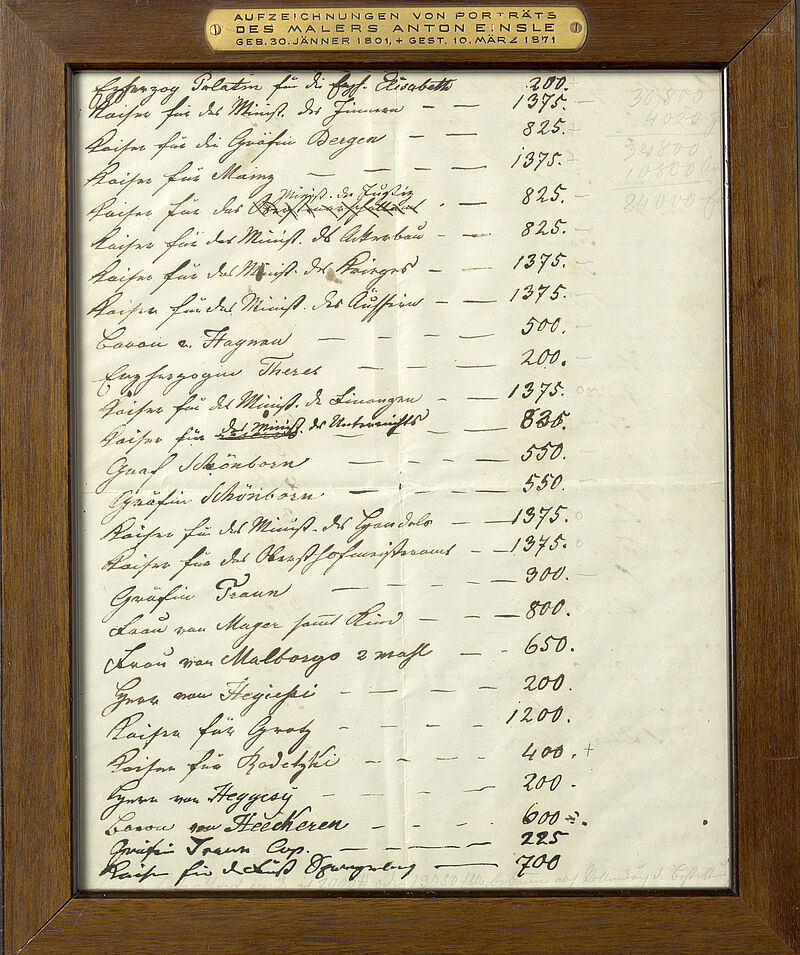 AUFZEICHNUNGEN VON PORTRÄTS
DES MALERS ANTON EINSLE
GEB. 30. JÄNNER 1801, + GEST. 10. MÄRZ 1871
Erzherzog Palatin für die Erzh. Elisabeth 200.
Kaiser für das Minist. des Innern — — 1375.
Kaiser für die Gräfin Bergen — — 825.
Kaiser für Mainz — — — — 1375.
Minist. der Justiz
Kaiser für das — 825.
Kaiser für das Minist. des Ackerbau — — 825.
Kaiser für das Minist. des Krieges — — 1375.
Kaiser für das Minist. des Äussern — — 1375.
Baron v. Haynau — — — — 500.
Erzherzogin Theres — — — 200.
Kaiser für das Minist. der Finanzen — — 1375.
Kaiser für das Minist. des Unterrichts — — 825.
Graf Schönborn — — — — 550.
Gräfin Schönborn — — — — 550.
Kaiser für das Minist. des Handels — — 1375.
Kaiser für das Obersthofmeisteramt — — 1375.
Gräfin Traun — — — — 300.
Frau von Mayer sammt Kind — — — 800.
Frau von Malborgo 2 mahl — - 650.
Herr von — — — — 200.
Kaiser für Gratz - — — — 1200.
Kaiser für Radetzki — - - — 400. +
Herr von Heggesy - — - — 200.
Baron von Heeckeren - - - — 600
Gräfin Traun Cop. — — — 225
Kaiser für d. Fürst —— 700
30,800
4000
34800
10800
24000